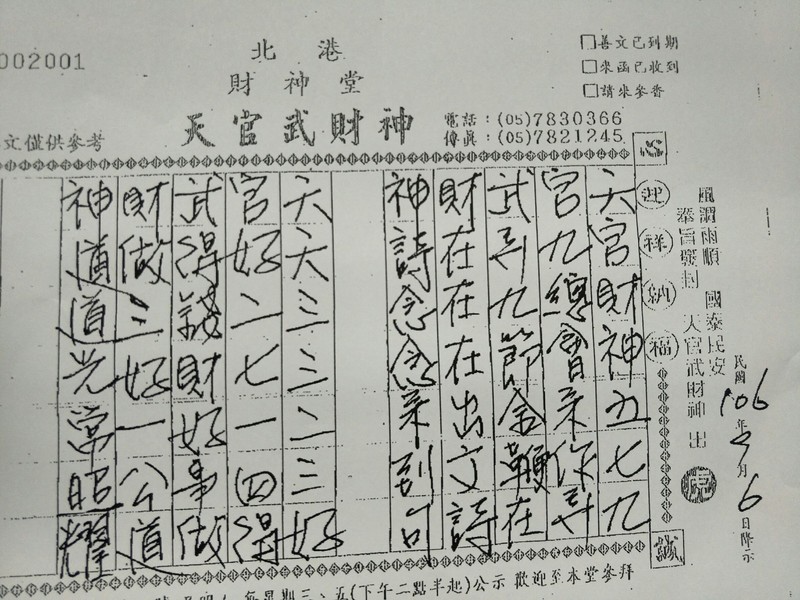 002001
北港
財神堂
天官武財神
電話：(05)7830366
傳真：(05)7821245
□善文已到期
□來函已收到
□請來參香
文僅供參考
心
迎祥納福
誠
風調雨順 國泰民安
奉旨發封 天官武財神 出
民國106年 月6日降示
天官財神五七九
官九總會來作
武 九節金鞭在
財在在在出文詩
神詩念念來到
天天三三二三好
官好二七一四得
武得錢財好事做
財做二好一公道
神道道光常昭耀
每星期三、五(下午二點半起)公示 歡迎至本堂參拜